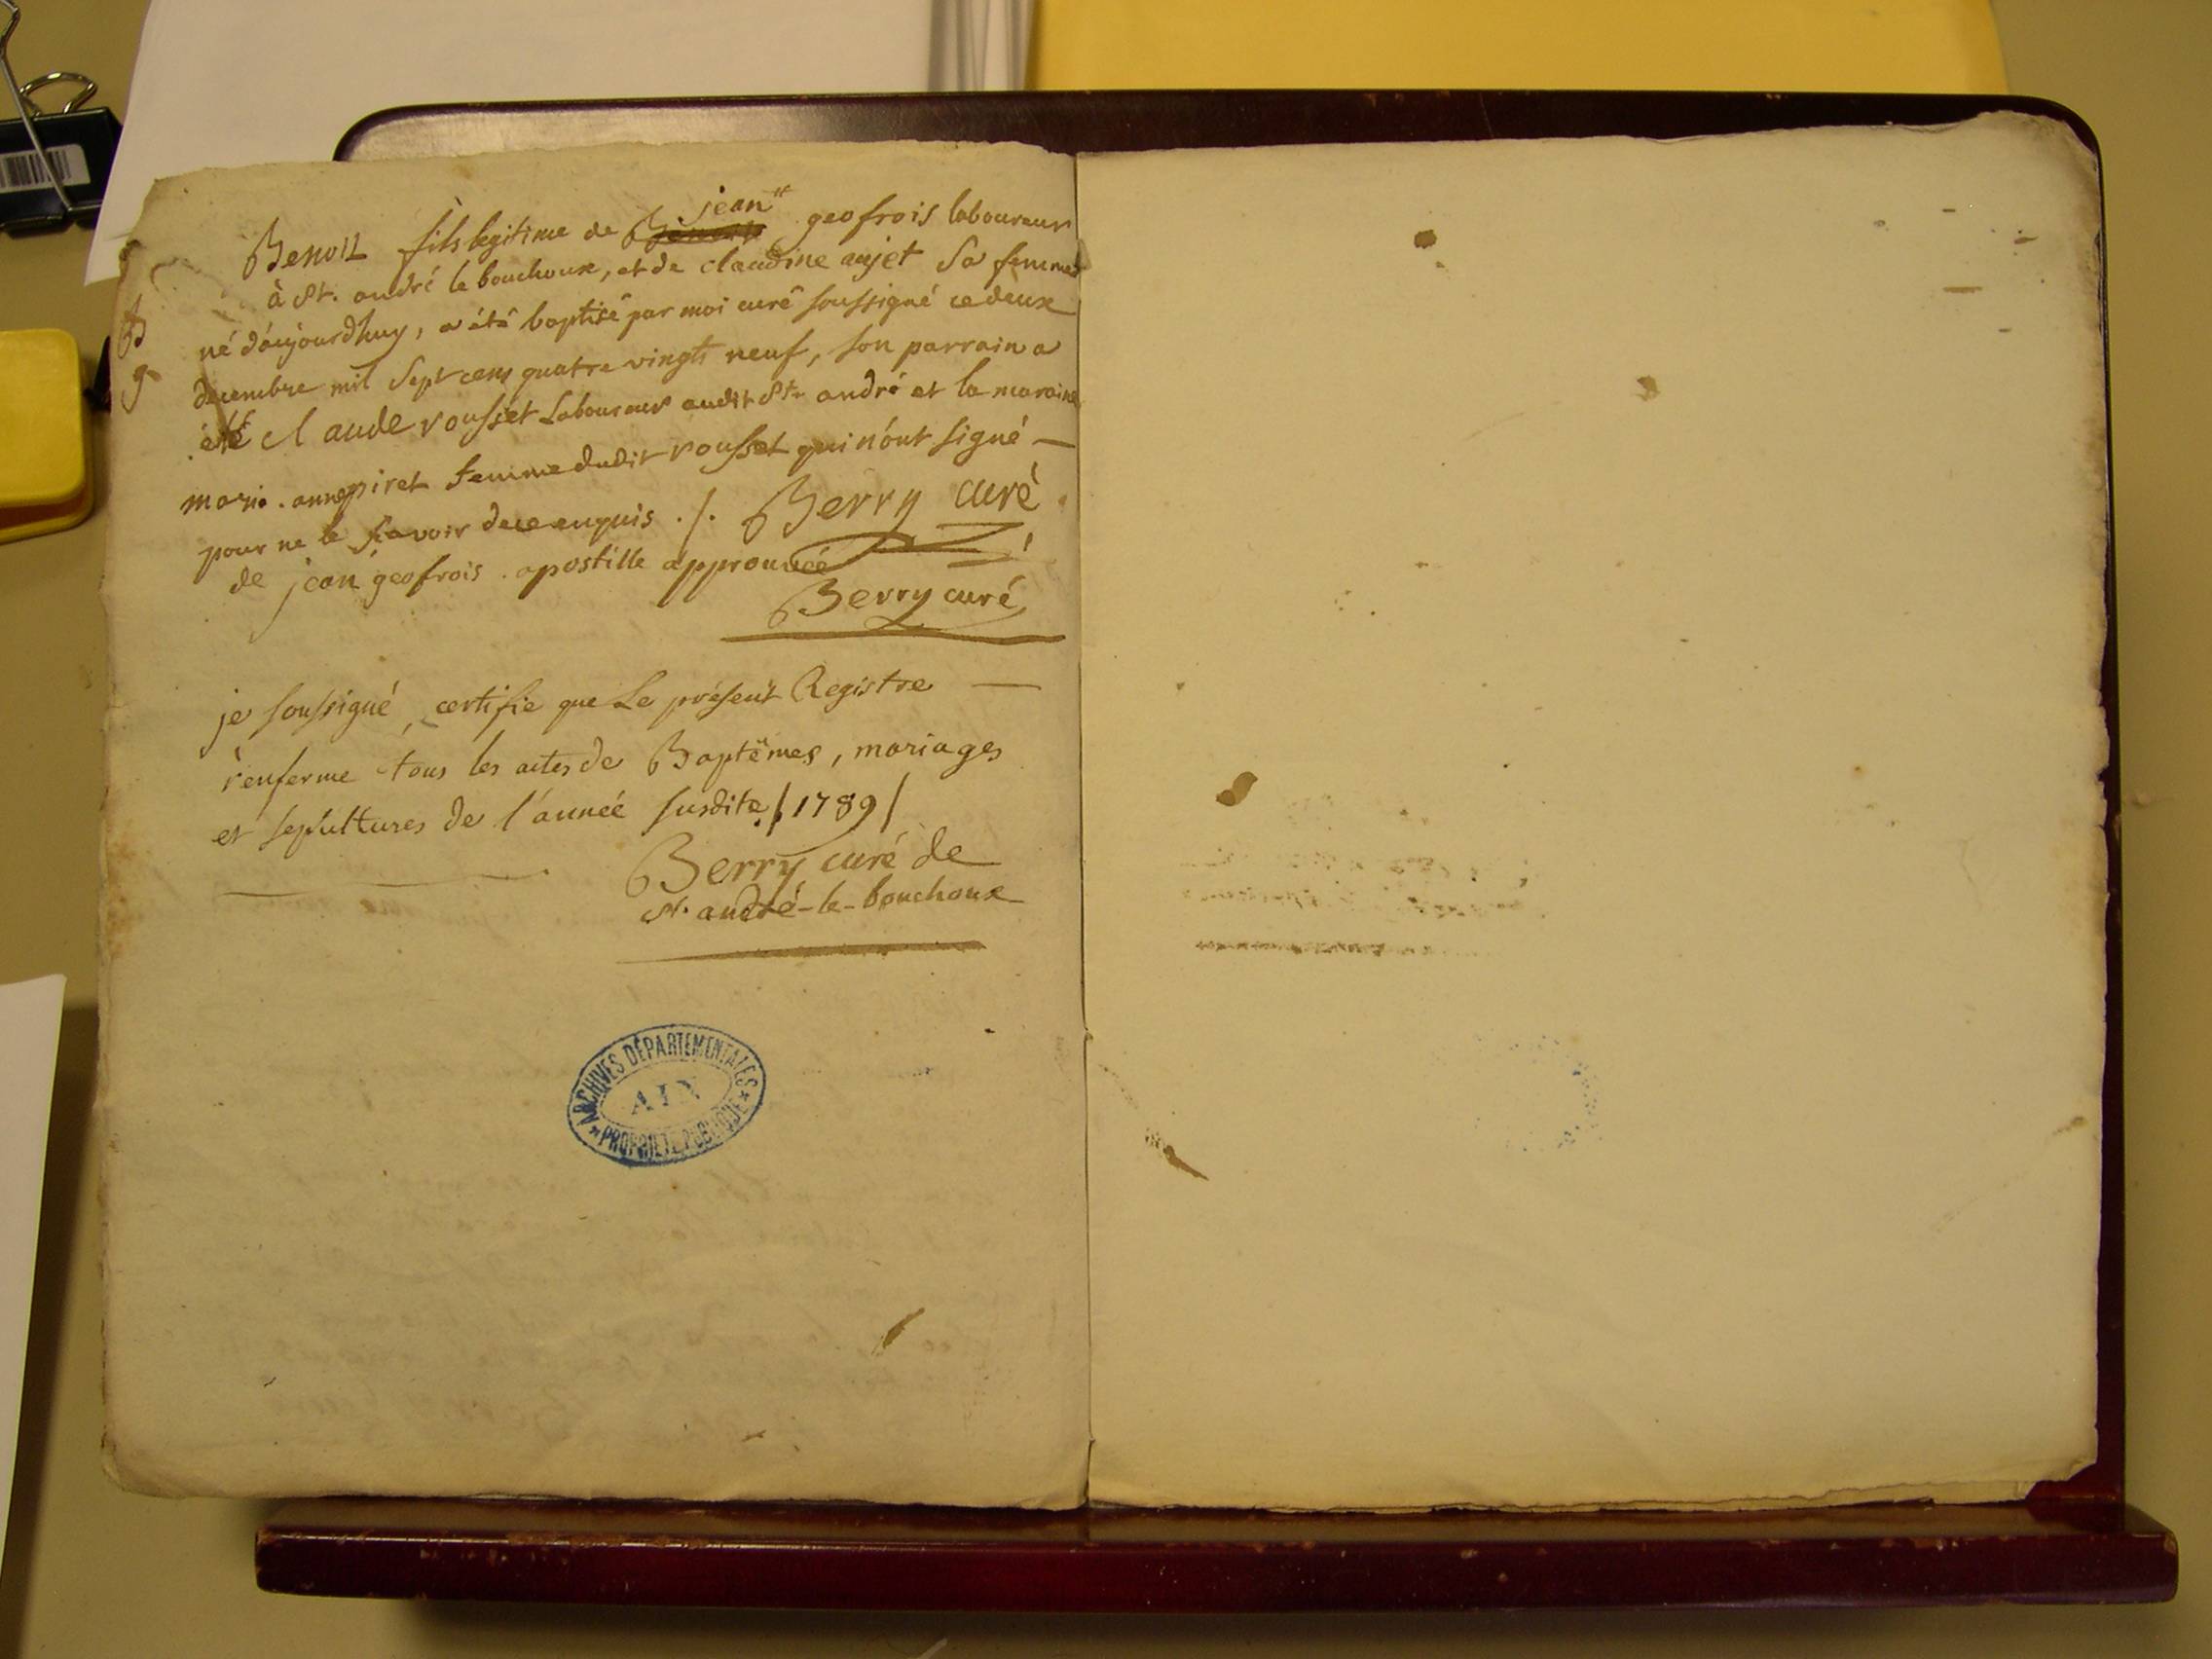 jean
Benoit fils legitime de geofrois laboureur
à St. andré le bouchoux, et de claudine aujet Sa femme
né d'aujourdhuy, a été baptisé par moi curé soussigné ce deux
decembre mil Sept cens quatre vingts neuf, son parrain a
été claude rousset Laboureur audit St. andré et la maraine
marie. anne piret femme dudit rousset qui n'ont signé —
pour ne le scavoir de ce enquis ./. Berry curé
de jean geofrois. apostille approuvée
Berry curé
je soussigné, certifie que Le présent Registre —
renferme tous les actes de Baptêmes, mariages
et sepultures de l'année susdite / 1789 /
Berry curé de
St. andré-le-bouchoux
ARCHIVES DÉPARTEMENTALES
AIN
PROPRIÉTÉ PUBLIQUE